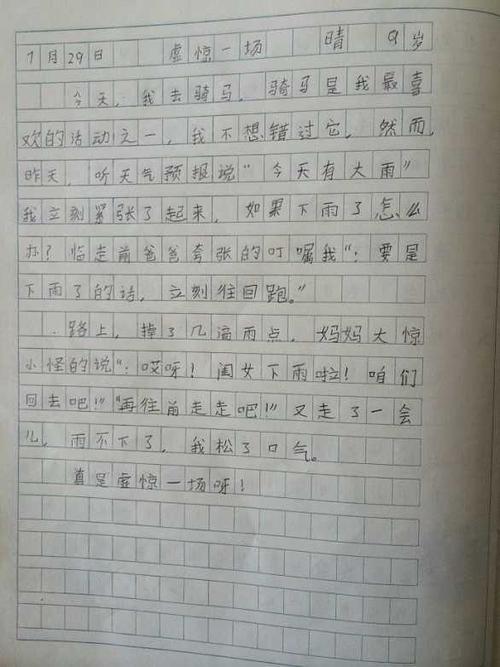 7月29日 虚惊一场 晴 9岁
今天，我去骑马，骑马是我最喜
欢的活动之一，我不想错过它，然而，
昨天，听天气预报说“今天有大雨”
我立刻紧张了起来，如果下雨了怎么
办？临走前爸爸夸张的叮嘱我“：要是
下雨了的话，立刻往回跑。”
路上，掉了几滴雨点，妈妈大惊
小怪的说“：哎呀！闺女下雨啦！咱们
回去吧！”“再往前走走吧！”又走了一会
儿，雨不下了，我松了口气。
真是虚惊一场呀！